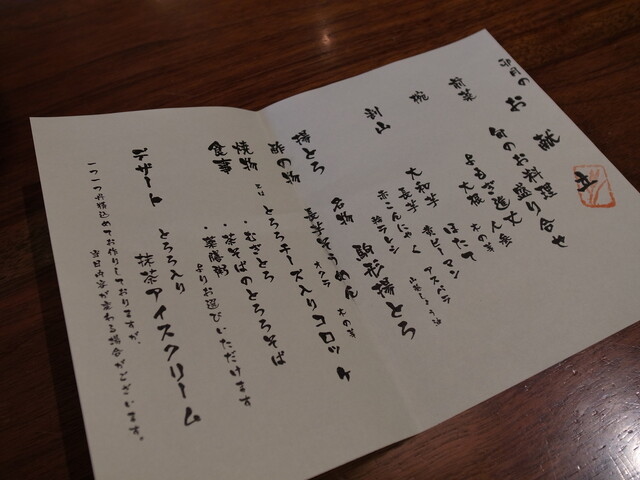 卯月の お献立
前菜 旬のお料理盛り合せ
椀 よもぎ進丈 人参
大根 木の芽
判山 ほたて アスパラ
赤ピーマン 山葵しょうゆ
大和芋
長芋
赤こんにゃく
揚とろ 名物 駒形揚とろ
酢の物 長芋そうめん 木の芽
オクラ
焼物 とろろチーズ入りコロッケ
食事 ・むぎとろ
・茶そばのとろろそば
・薬膳粥
よりお選びいただけます
デザート とろろ入り
抹茶アイスクリーム
一つ一つお心込めてお作りしておりますが、
当日内容が変わる場合がございます。